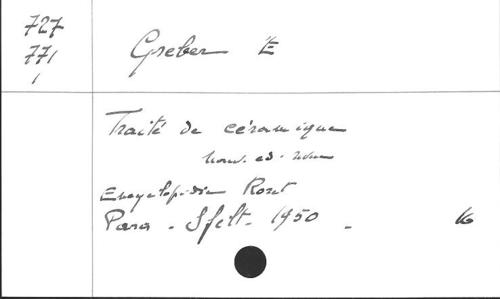 727
771
1
Greber E
Traité de céramique
nouv. ed. revue
Encyclopédie Roret
Paris - Sfelt - 1950 -